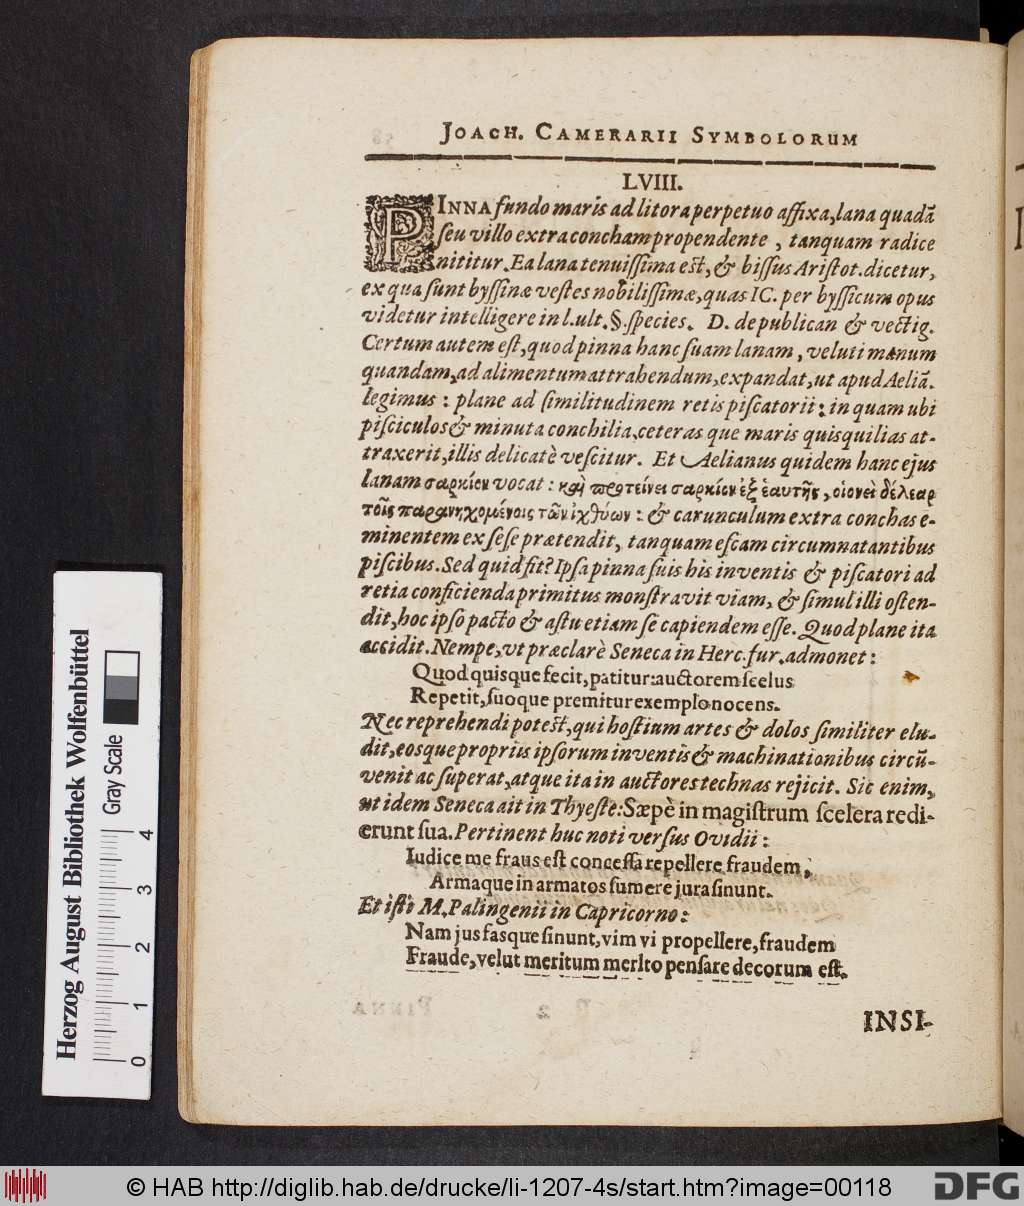 JOACH. CAMERARII SYMBOLORUM
LVIII.
PINNA fundo maris ad litora perpetuo affixa, lana quadã
seu villo extra concham propendente, tanquam radice
nititur. Ea lana tenuissima est, & bissus Aristot. dicetur,
ex qua sunt byssinæ vestes nobilissimæ, quas IC. per byssicum opus
videtur intelligere in l. ult. §. species. D. de publican & vectig.
Certum autem est, quod pinna hanc suam lanam, veluti manum
quandam, ad alimentum attrahendum, expandat, ut apud Aeliã.
legimus: plane ad similitudinem retis piscatorii: in quam ubi
pisciculos & minuta conchilia, ceteras que maris quisquilias at-
traxerit, illis delicatè vescitur. Et Aelianus quidem hanc ejus
lanam σαρκίον vocat: καὶ προτείνει σαρκίον ἐξ ἑαυτῆς, οἱονεὶ δέλεαρ
τοῖς παρανηχομένοις τῶν ἰχθύων: & carunculum extra conchas e-
minentem ex sese prætendit, tanquam escam circumnatantibus
piscibus. Sed quid fit? Ipsa pinna suis his inventis & piscatori ad
retia conficienda primitus monstravit viam, & simul illi osten-
dit, hoc ipso pacto & astu etiam se capiendem esse. Quod plane ita
accidit. Nempe, ut præclarè Seneca in Herc. fur. admonet:
Quod quisque fecit, patitur: auctorem scelus
Repetit, suoque premitur exemplo nocens.
Nec reprehendi potest, qui hostium artes & dolos similiter elu-
dit, eosque propriis ipsorum inventis & machinationibus circũ-
venit ac superat, atque ita in auctores technas rejicit. Sic enim,
ut idem Seneca ait in Thyeste: Sæpè in magistrum scelera redi-
erunt sua. Pertinent huc noti versus Ovidii:
Iudice me fraus est concessa repellere fraudem,
Armaque in armatos sumere jura sinunt.
Et isti M. Palingenii in Capricorno:
Nam jus fasque sinunt, vim vi propellere, fraudem
Fraude, velut meritum merito pensare decorum est.
INSI-
Herzog August Bibliothek Wolfenbüttel
Gray Scale
0 1 2 3 4
© HAB http://diglib.hab.de/drucke/li-1207-4s/start.htm?image=00118
DFG